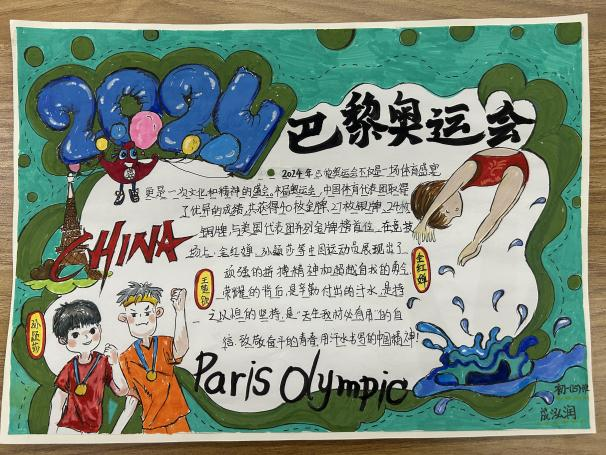 2024
巴黎奥运会
2024年巴黎奥运会不仅是一场体育盛宴
更是一次文化和精神的盛会。本届奥运会,中国体育代表团取得
了优异的成绩,共获得40枚金牌、27枚银牌、24枚
铜牌,与美国代表团并列金牌榜首位。在竞技
场上,全红婵、孙颖莎等中国运动员展现出了
顽强的拼搏精神和超越自我的勇气
荣耀的背后,是辛勤付出的汗水,是持
之以恒的坚持,是"天生我材必有用"的自
信,致敬奋斗的青春,用汗水书写的中国精神!
CHINA
全红婵
王楚钦
孙颖莎
Paris Olympic
初一(5)班
泓润